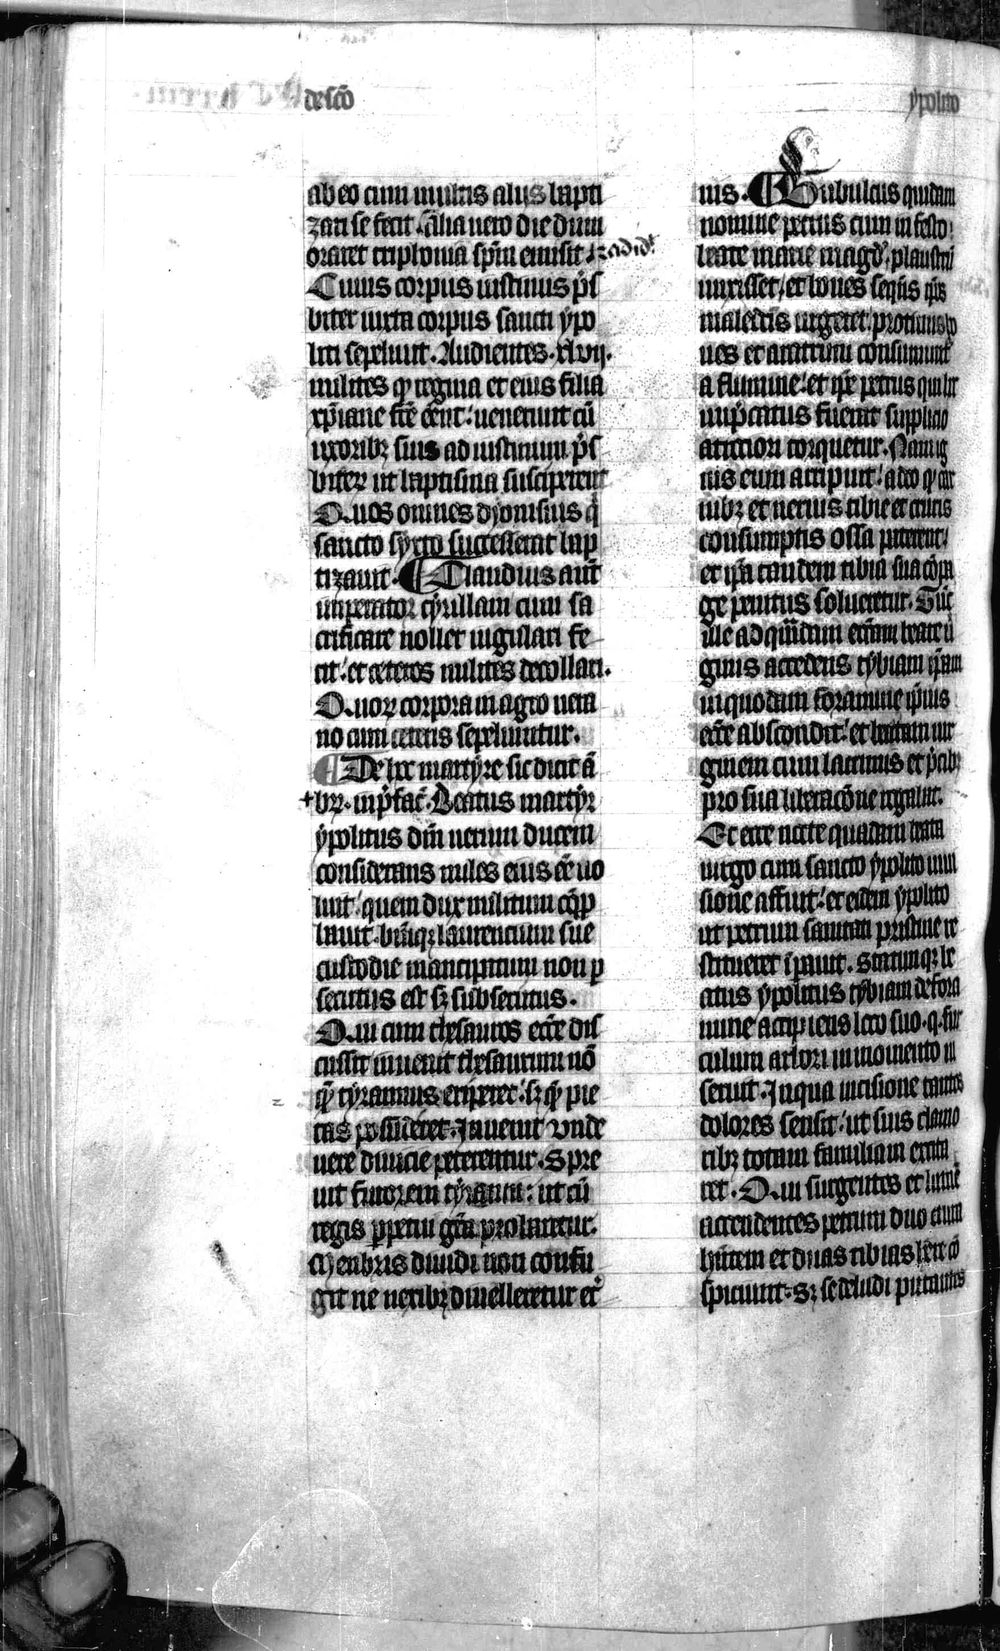 de scō
ypolito
ab eo cum multis alijs bapti
zari se fecit. alia uero die dum
oraret triphonia spm̄ emisit tradid
Cuius corpus iustinus p̄s
biter iuxta corpus sancti ypo
liti sepeliuit. Audientes. xlvij.
milites qp regina et eius filia
xp̄iane fc̄e eēnt: uenerunt cū
uxoribꝫ suis ad iustinum p̄s
biteꝝ ut baptisma susciperent
Quos omnes dyonisius q̄
sancto syxto successerat bap
tizauit. Claudius aūt
imperator cyrillam cum sa
crificare nollet iugulari fe
cit: et ceteros milites decollari.
Quoꝝ corpora in agro uera
no cum ceteris sepeliuntur.
De hoc martyre sic dicit ā
bꝝ. in p̄fac̄. Beatus martyr
ypolitus dm̄ uerum ducem
considerans miles eius eē uo
luit: quem dux militum cōp
lauit. hūcqꝫ laurencium sue
custodie mancipatum non p
secutus est sꝫ subsecutus.
Qui cum thesauros ecc̄e dis
cussit inuenit thesaurum nō
qm̄ tyrannus eriperet: sꝫ qm̄ pie
tas possideret. Inuenit vnde
uere diuicie peterentur. Spre
uit fauorem tyranni: ut cū
regis ꝑpetui gr̄a probaretur.
Menbris diuidi non confu
git ne nexibꝫ diuelleretur et
nis. Bubulcus quidam
nomine petrus cum in festo
beate marie magd. plaustrū
iunxisset: et boues sequēs ip̄s
maledictis urgeret: protinus bo
ues et aratrum consumunt
a flumine: et ip̄e petrus qui hec
inp̄catus fuerat supplicio
atrociori torquetur. Nam ig
nis eum arripuit: adeo qp car
nibꝫ et neruis tibie et cruris
consumptis ossa paterent:
et ip̄a tandem tibia sua cōpa
ge penitus solueretur. Tūc
ille ad quādam ecc̄iam beate ū
ginis accedens tybiam ip̄am
in quodam foramine ip̄ius
ecc̄e abscondit: et beatam uir
ginem cum lacrimis et p̄cibꝫ
pro sua liberac̄one rogabat.
Et ecce nocte quadam beata
uirgo cum sancto ypolito in ui
sione affuit: et eidem ypolito
ut petrum sanitati pristine re
stitueret ip̄auit. Statimqꝫ be
atus ypolitus tybiam de fora
mine accipiens loco suo. q. sur
culum arbori in momento in
seruit. In qua incisione tantos
dolores sensit: ut suis clamo
ribꝫ totam familiam excita
ret. Qui surgentes et lumē
accendentes petrum duo crura
habentem et duas tibias bene cō
spiciunt. Sꝫ se deludi putantes